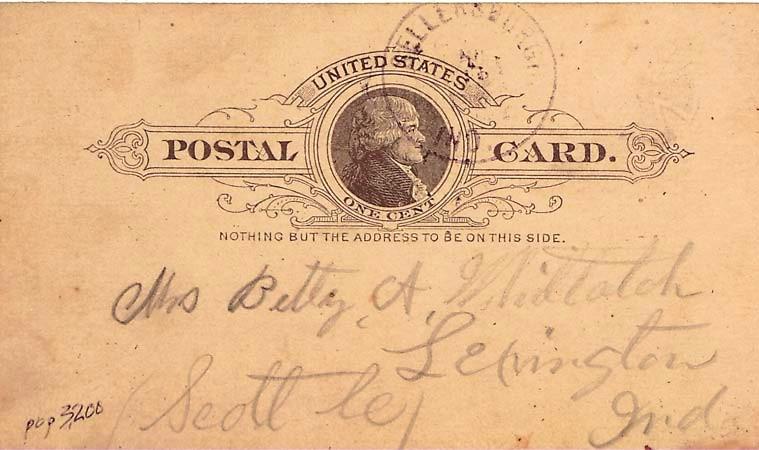 ELLERSBURGH
IND
UNITED STATES
POSTAL CARD.
ONE CENT
NOTHING BUT THE ADDRESS TO BE ON THIS SIDE.
Mrs Betty A.
Lexington
Scott Co
Ind
pop 3200